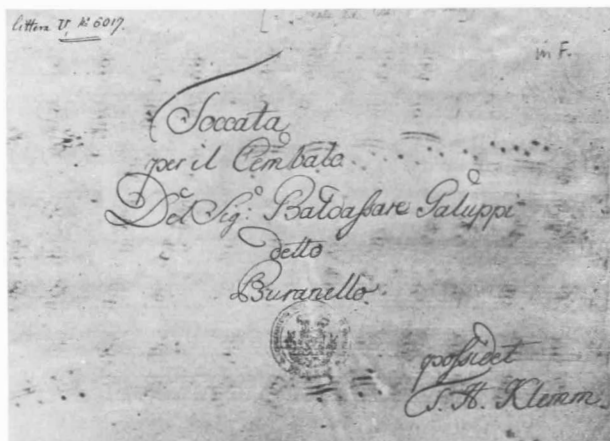 littera V No 6017.
in F.
Toccata
per il Cembalo
Del Sigo: Baldassare Galuppi
detto
Buranello.
possidet
J. H. Klemm.